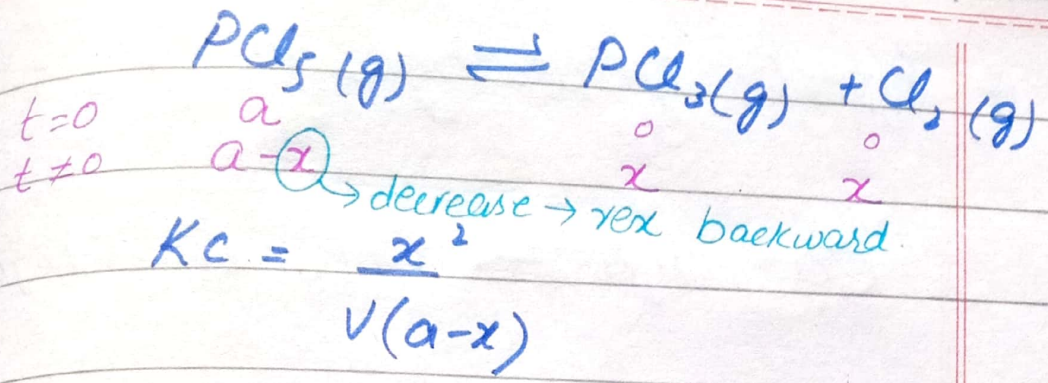 PCl₅ (g) ⇌ PCl₃(g) + Cl₂ (g)
t=0 a 0 0
t≠0 a-x x x
→ decrease → rex backward.
Kc = x²
V(a-x)